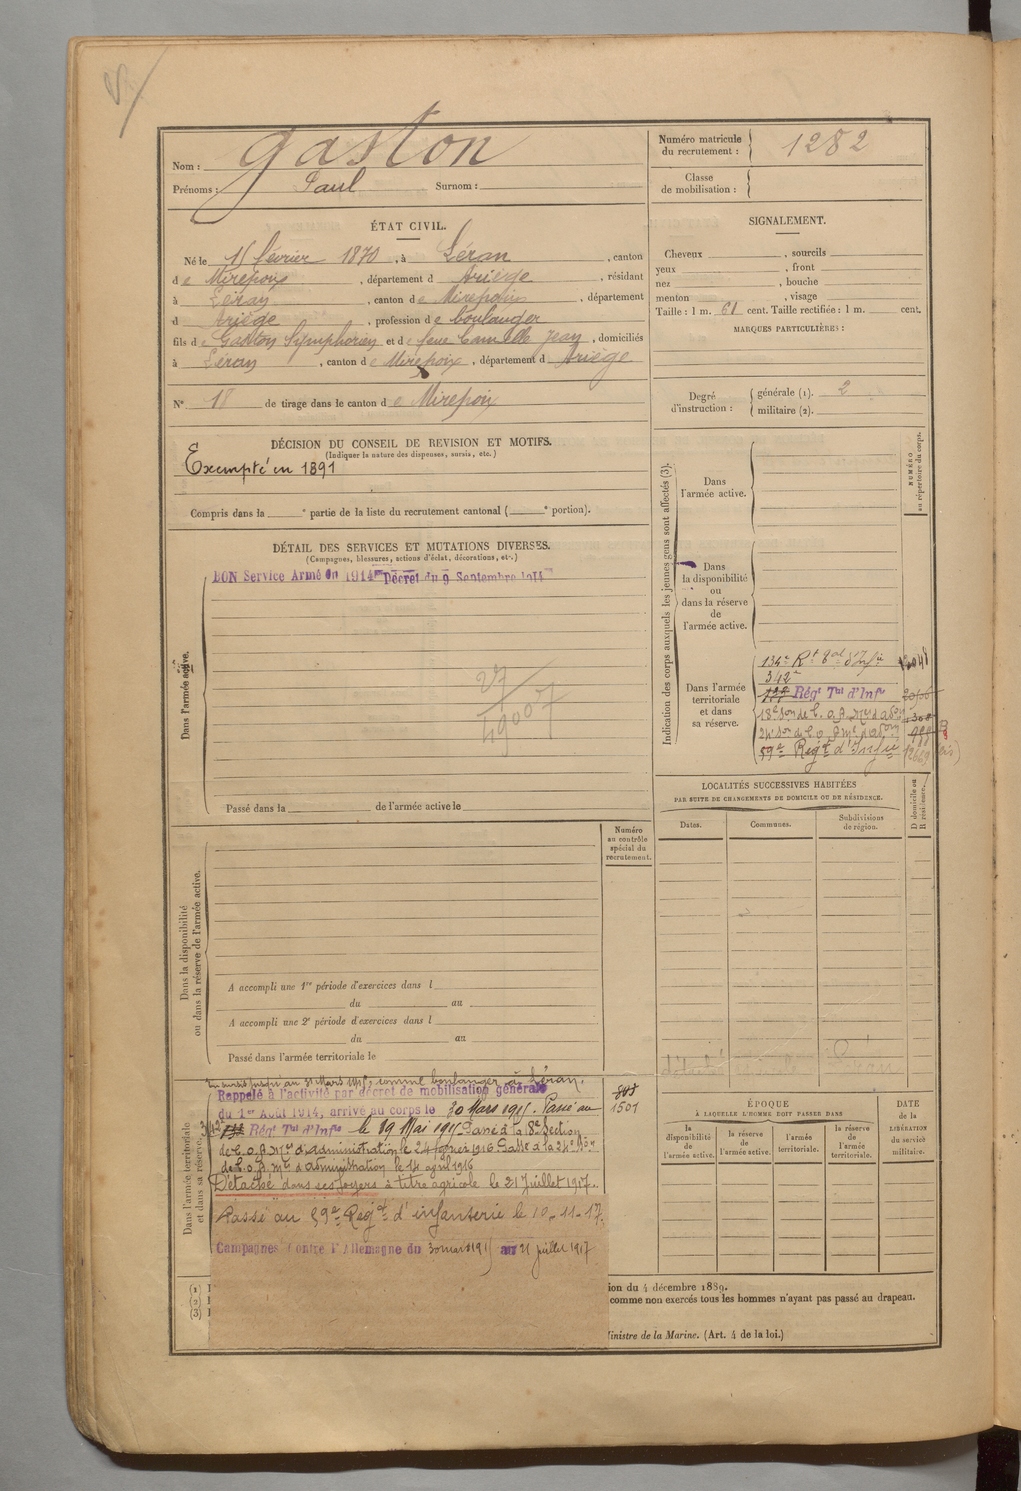 Nom : Gaston
Prénoms : Paul Surnom :
Numéro matricule du recrutement : 1282
Classe de mobilisation :
ÉTAT CIVIL.
Né le février 1870, à Léran, canton
de Mirepoix, département d Ariège, résidant
à Léran, canton de Mirepoix, département
d Ariège, profession de boulanger
fils de Gaston Symphorien et de feue Jean, domiciliés
à Léran, canton de Mirepoix, département d Ariège
N° 18 de tirage dans le canton de Mirepoix
SIGNALEMENT.
Cheveux , sourcils
yeux , front
nez , bouche
menton , visage
Taille : 1 m. 61 cent. Taille rectifiée : 1 m. cent.
MARQUES PARTICULIÈRES :
Degré d'instruction : générale (1). 2
militaire (2).
DÉCISION DU CONSEIL DE REVISION ET MOTIFS.
(Indiquer la nature des dispenses, sursis, etc.)
Exempté en 1891
Compris dans la e partie de la liste du recrutement cantonal ( e portion).
DÉTAIL DES SERVICES ET MUTATIONS DIVERSES.
(Campagnes, blessures, actions d'éclat, décorations, etc.)
BON Service Armé en 1914 Décret du 9 Septembre 1914
Dans l'armée active.
49007
Passé dans la de l'armée active le
Indication des corps auxquels les jeunes gens sont affectés (3).
NUMÉRO au répertoire du corps.
Dans l'armée active.
Dans la disponibilité ou dans la réserve de l'armée active.
Dans l'armée territoriale et dans sa réserve.
134e Rt d'Infie
342e
Régt Tal d'Infie
18e son de C.O.A.
24e son de C.O.A.
59e Regt d'Infie
LOCALITÉS SUCCESSIVES HABITÉES
PAR SUITE DE CHANGEMENTS DE DOMICILE OU DE RÉSIDENCE.
D domicile ou R résidence.
Dates. Communes. Subdivisions de région.
Numéro au contrôle spécial du recrutement.
Dans la disponibilité ou dans la réserve de l'armée active.
A accompli une 1re période d'exercices dans l
du au
A accompli une 2e période d'exercices dans l
du au
Passé dans l'armée territoriale le
Léran
Dans l'armée territoriale et dans sa réserve.
En sursis jusqu'au 31 Mars 1915, comme boulanger à Léran.
Rappelé à l'activité par décret de mobilisation générale
du 1er Août 1914, arrivé au corps le 30 Mars 1915. Passé au
342e Régt Tal d'Infie le 19 Mai 1915 Passé à la 18e Section
de C.O.A. d'administration le 24 février 1916 Passé à la 24e Son
de C.O.A. d'administration le 14 avril 1916
Détaché dans ses foyers à titre agricole le 21 juillet 1917.
Passé au 59e Regt d'infanterie le 10-11-17.
Campagnes Contre l'Allemagne du 30 mars 1915 au 21 juillet 1917
1501
ÉPOQUE
À LAQUELLE L'HOMME DOIT PASSER DANS
la disponibilité de l'armée active. la réserve de l'armée active. l'armée territoriale. la réserve de l'armée territoriale.
DATE de la LIBÉRATION du service militaire.
(1)
(2)
(3)
ion du 4 décembre 1889.
comme non exercés tous les hommes n'ayant pas passé au drapeau.
Ministre de la Marine. (Art. 4 de la loi.)